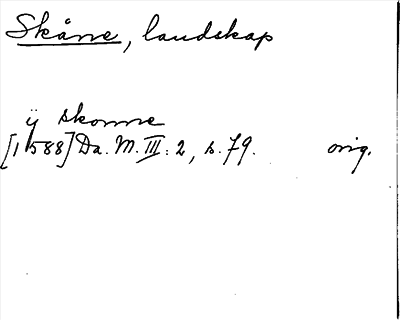 Skåne, landskap
ÿ skonne
[1588] Da. M. III: 2, s. 79. orig.